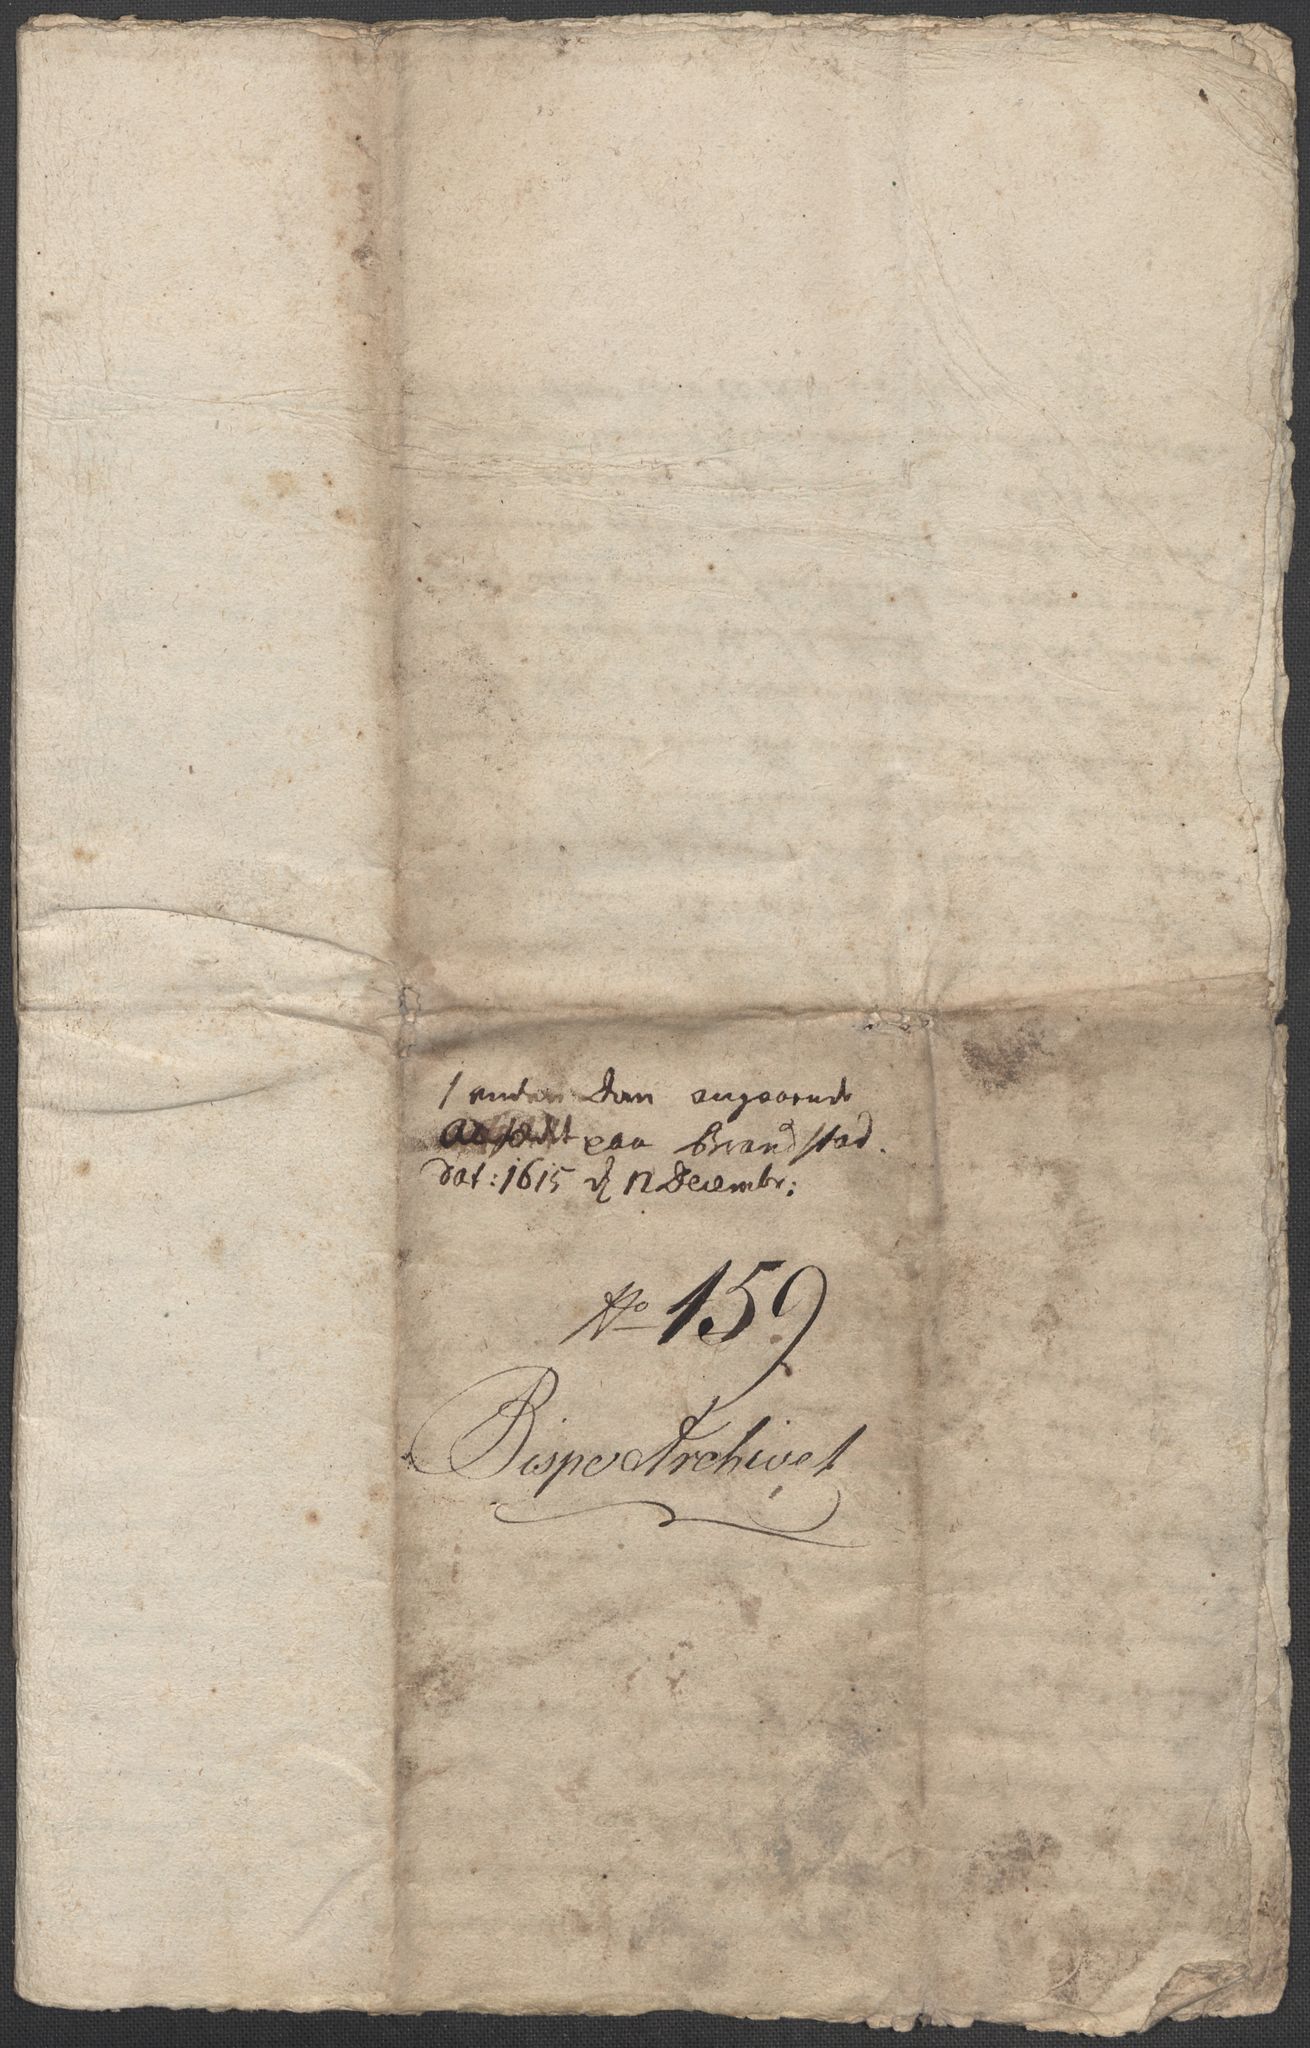 angaaende
paa Brandstad.
Dat: 1615 d 12 Decembr:
No 159
Bispe Archivet